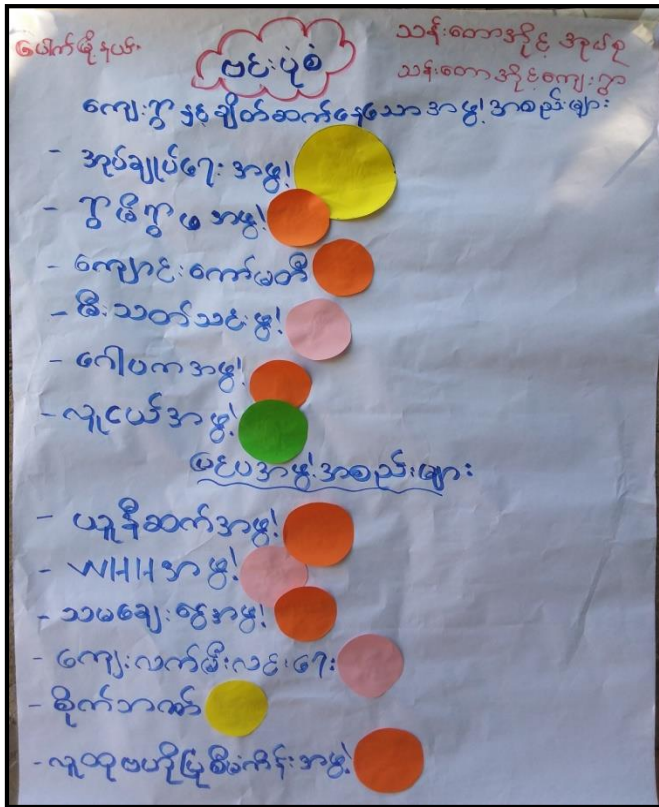 ပေါက်မြို့နယ်
ဗင်းပုံစံ
သန်းတောအိုင် အုပ်စု
သန်းတောအိုင်ကျေးရွာ
ကျေးရွာနှင့်ချိတ်ဆက်နေသောအဖွဲ့အစည်းများ
- အုပ်ချုပ်ရေးအဖွဲ့
- ရွာမိရွာဖအဖွဲ့
- ကျောင်းကော်မတီ
- မီးသတ်သင်းဖွဲ့
- ဂေါပကအဖွဲ့
- လူငယ်အဖွဲ့
ပြင်ပအဖွဲ့အစည်းများ
- ယူနီဆက်အဖွဲ့
- WHHအဖွဲ့
- သမချေးငွေအဖွဲ့
- ကျေးလက်မီးလင်းရေး
- စိုက်ဘဏ်
- လူထုဗဟိုပြုစီမံကိန်းအဖွဲ့